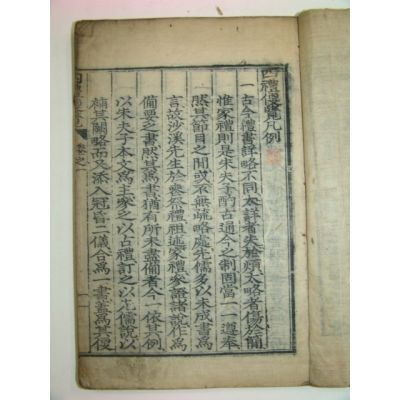 四禮便覽凡例
一古今禮書詳略不同太詳者失於煩太略者傷於簡
惟家禮則是朱夫子酌古通今之制固當一一遵奉
然其節目之間或不無疏略處先儒多以未成書爲
言故沙溪先生於喪祭禮祖述家禮參證諸說作爲
備要之書然其爲書猶有所未盡備者今一依其例
以朱夫子本文爲主宷之以古禮訂之以先儒說以
補其闕略而又添入冠昏二儀合爲一書蓋爲其便